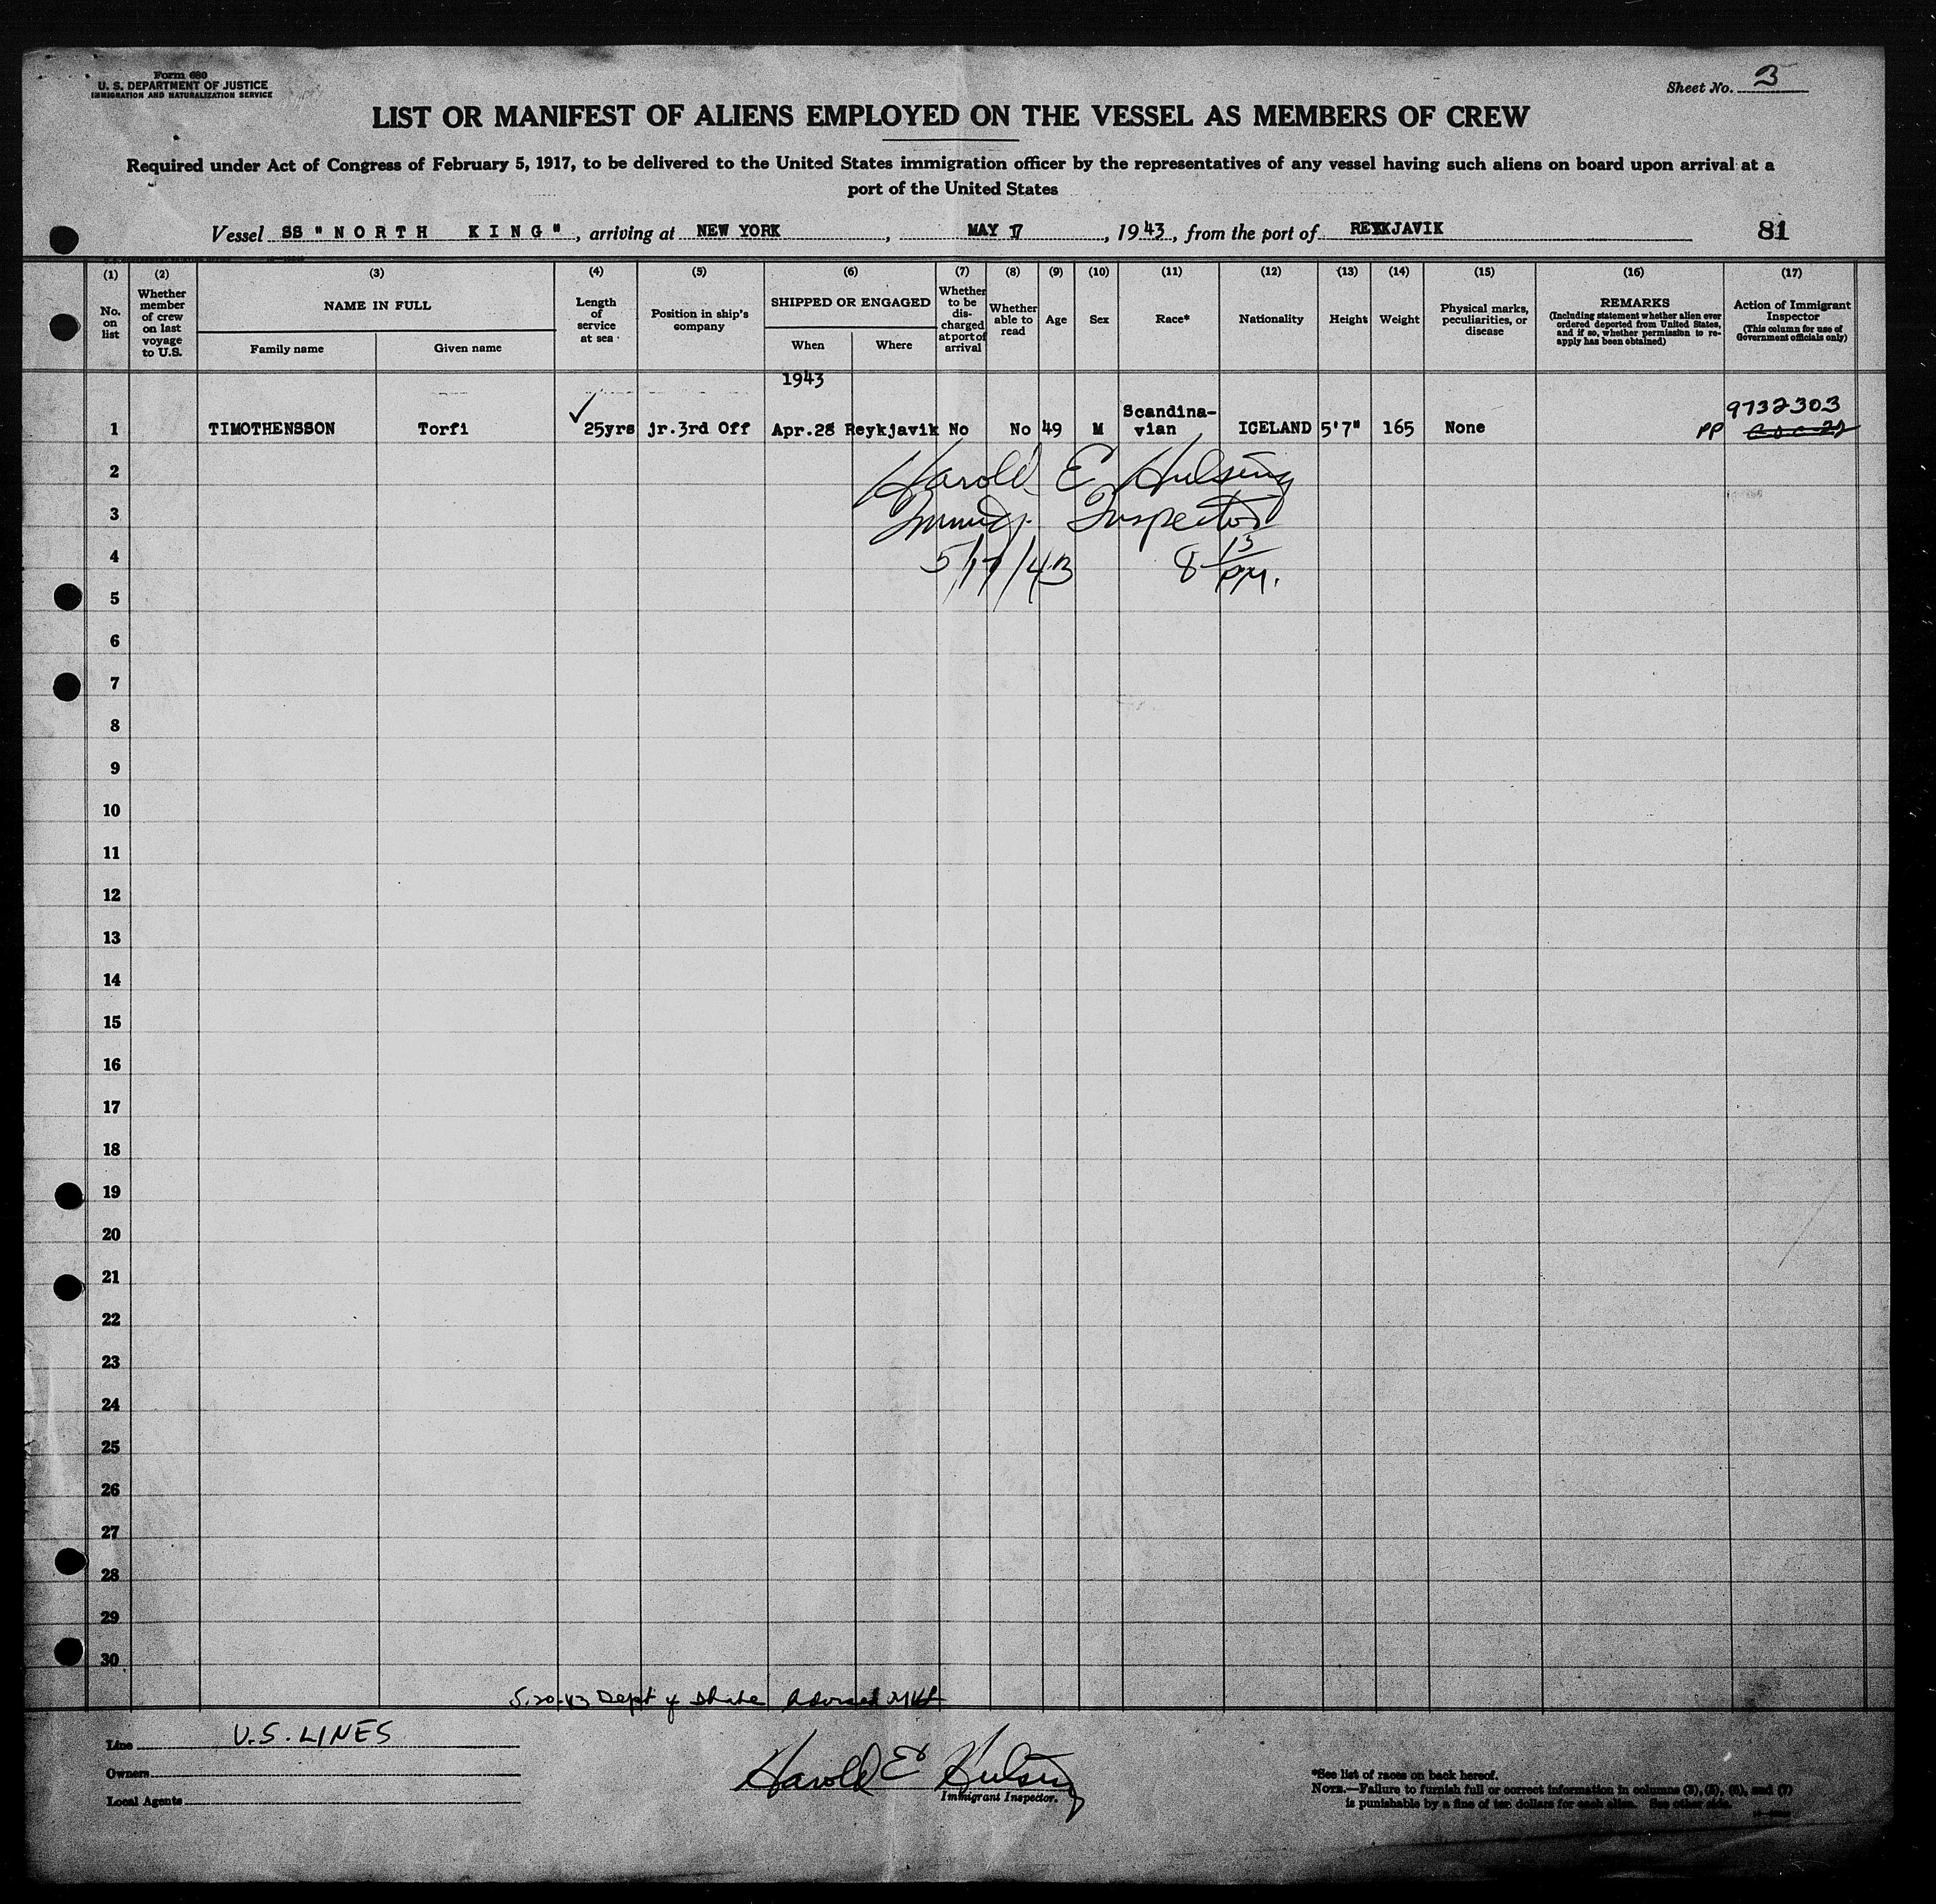 Form 680
U. S. DEPARTMENT OF JUSTICE
IMMIGRATION AND NATURALIZATION SERVICE
Sheet No. 3
LIST OR MANIFEST OF ALIENS EMPLOYED ON THE VESSEL AS MEMBERS OF CREW
Required under Act of Congress of February 5, 1917, to be delivered to the United States immigration officer by the representatives of any vessel having such aliens on board upon arrival at a
port of the United States
Vessel SS "NORTH KING", arriving at NEW YORK, MAY 17, 1943, from the port of REYKJAVIK 81
(1) (2) (3) (4) (5) (6) (7) (8) (9) (10) (11) (12) (13) (14) (15) (16) (17)
No. on list
Whether member of crew on last voyage to U.S.
NAME IN FULL
Family name
Given name
Length of service at sea
Position in ship's company
SHIPPED OR ENGAGED
When
Where
Whether to be discharged at port of arrival
Whether able to read
Age
Sex
Race*
Nationality
Height
Weight
Physical marks, peculiarities, or disease
REMARKS
(Including statement whether alien ever ordered deported from United States, and if so, whether permission to reapply has been obtained)
Action of Immigrant Inspector
(This column for use of Government officials only)
1943
1 TIMOTHENSSON Torfi 25yrs jr.3rd Off Apr.28 Reykjavik No No 49 M Scandina-vian ICELAND 5'7" 165 None PP 9732303
2 Harold E Hulsing
3 Immig. Inspector
4 5/17/43 8 15 PM.
5
6
7
8
9
10
11
12
13
14
15
16
17
18
19
20
21
22
23
24
25
26
27
28
29
30
5.20.43 Dept of State Advised
Line U.S. LINES
Owners
Local Agents
Harold E Hulsing
Immigrant Inspector.
*See list of races on back hereof.
NOTE.—Failure to furnish full or correct information in columns (3), (5), (6), and (7)
is punishable by a fine of ten dollars for each alien. See other side.